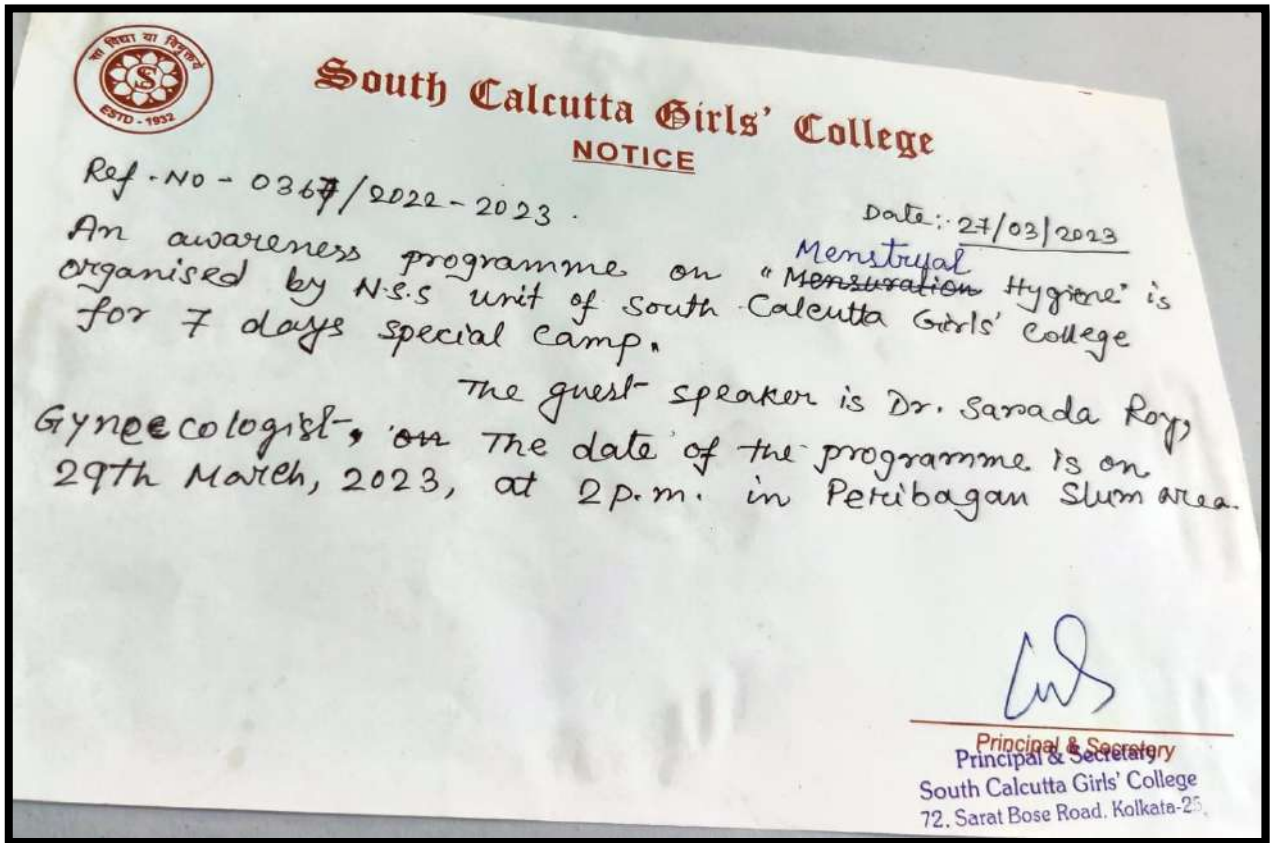 सा विद्या या विमुक्तये
S
ESTD - 1932
South Calcutta Girls' College
NOTICE
Ref. No - 0367/2022-2023.
Date: 27/03/2023
Menstryal
An awareness programme on "Mensuration Hygiene" is
organised by N.S.S unit of South Calcutta Girls' College
for 7 days special camp.
The guest speaker is Dr. Sarada Roy,
Gyneecologist, on The date of the programme is on
29th March, 2023, at 2 p.m. in Peribagan Slum area.
Principal & Secretary
Principal & Secretary
South Calcutta Girls' College
72, Sarat Bose Road, Kolkata-25